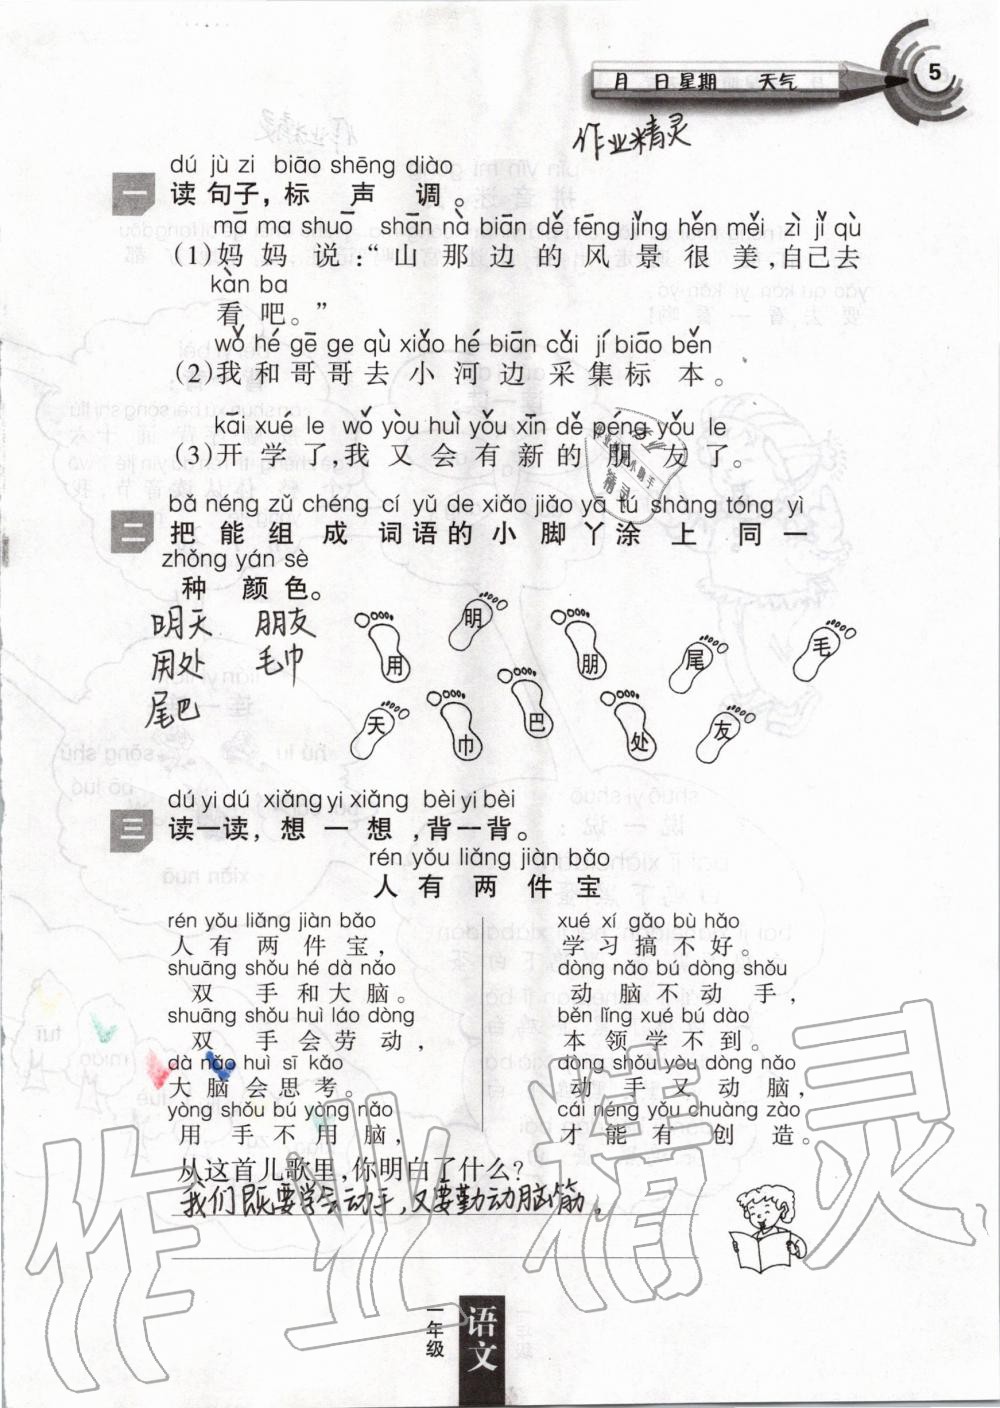 月 日 星期 天气
5
作业精灵
dú jù zi biāo shēng diào
一 读句子，标声调。
mā ma shuō shān nà biān de fēng jǐng hěn měi zì jǐ qù
(1)妈妈说：“山那边的风景很美，自己去
kàn ba
看吧。”
wǒ hé gē ge qù xiǎo hé biān cǎi jí biāo běn
(2)我和哥哥去小河边采集标本。
kāi xué le wǒ yòu huì yǒu xīn de péng yǒu le
(3)开学了，我又会有新的朋友了。
bǎ néng zǔ chéng cí yǔ de xiǎo jiǎo yā tú shàng tóng yì
二 把能组成词语的小脚丫涂上同一
zhǒng yán sè
种颜色。
明天 朋友
用处 毛巾
尾巴
用 明 朋 尾 毛
天 巾 巴 处 友
dú yi dú xiǎng yi xiǎng bèi yi bèi
三 读一读，想一想，背一背。
rén yǒu liǎng jiàn bǎo
人有两件宝
rén yǒu liǎng jiàn bǎo
人有两件宝，
shuāng shǒu hé dà nǎo
双手和大脑。
shuāng shǒu huì láo dòng
双手会劳动，
dà nǎo huì sī kǎo
大脑会思考。
yòng shǒu bú yòng nǎo
用手不用脑，
xué xí gǎo bù hǎo
学习搞不好。
dòng nǎo bú dòng shǒu
动脑不动手，
běn lǐng xué bú dào
本领学不到。
dòng shǒu yòu dòng nǎo
动手又动脑，
cái néng yǒu chuàng zào
才能有创造。
从这首儿歌里，你明白了什么？
我们既要学会动手，又要勤动脑筋。
作业精灵
一年级
语文